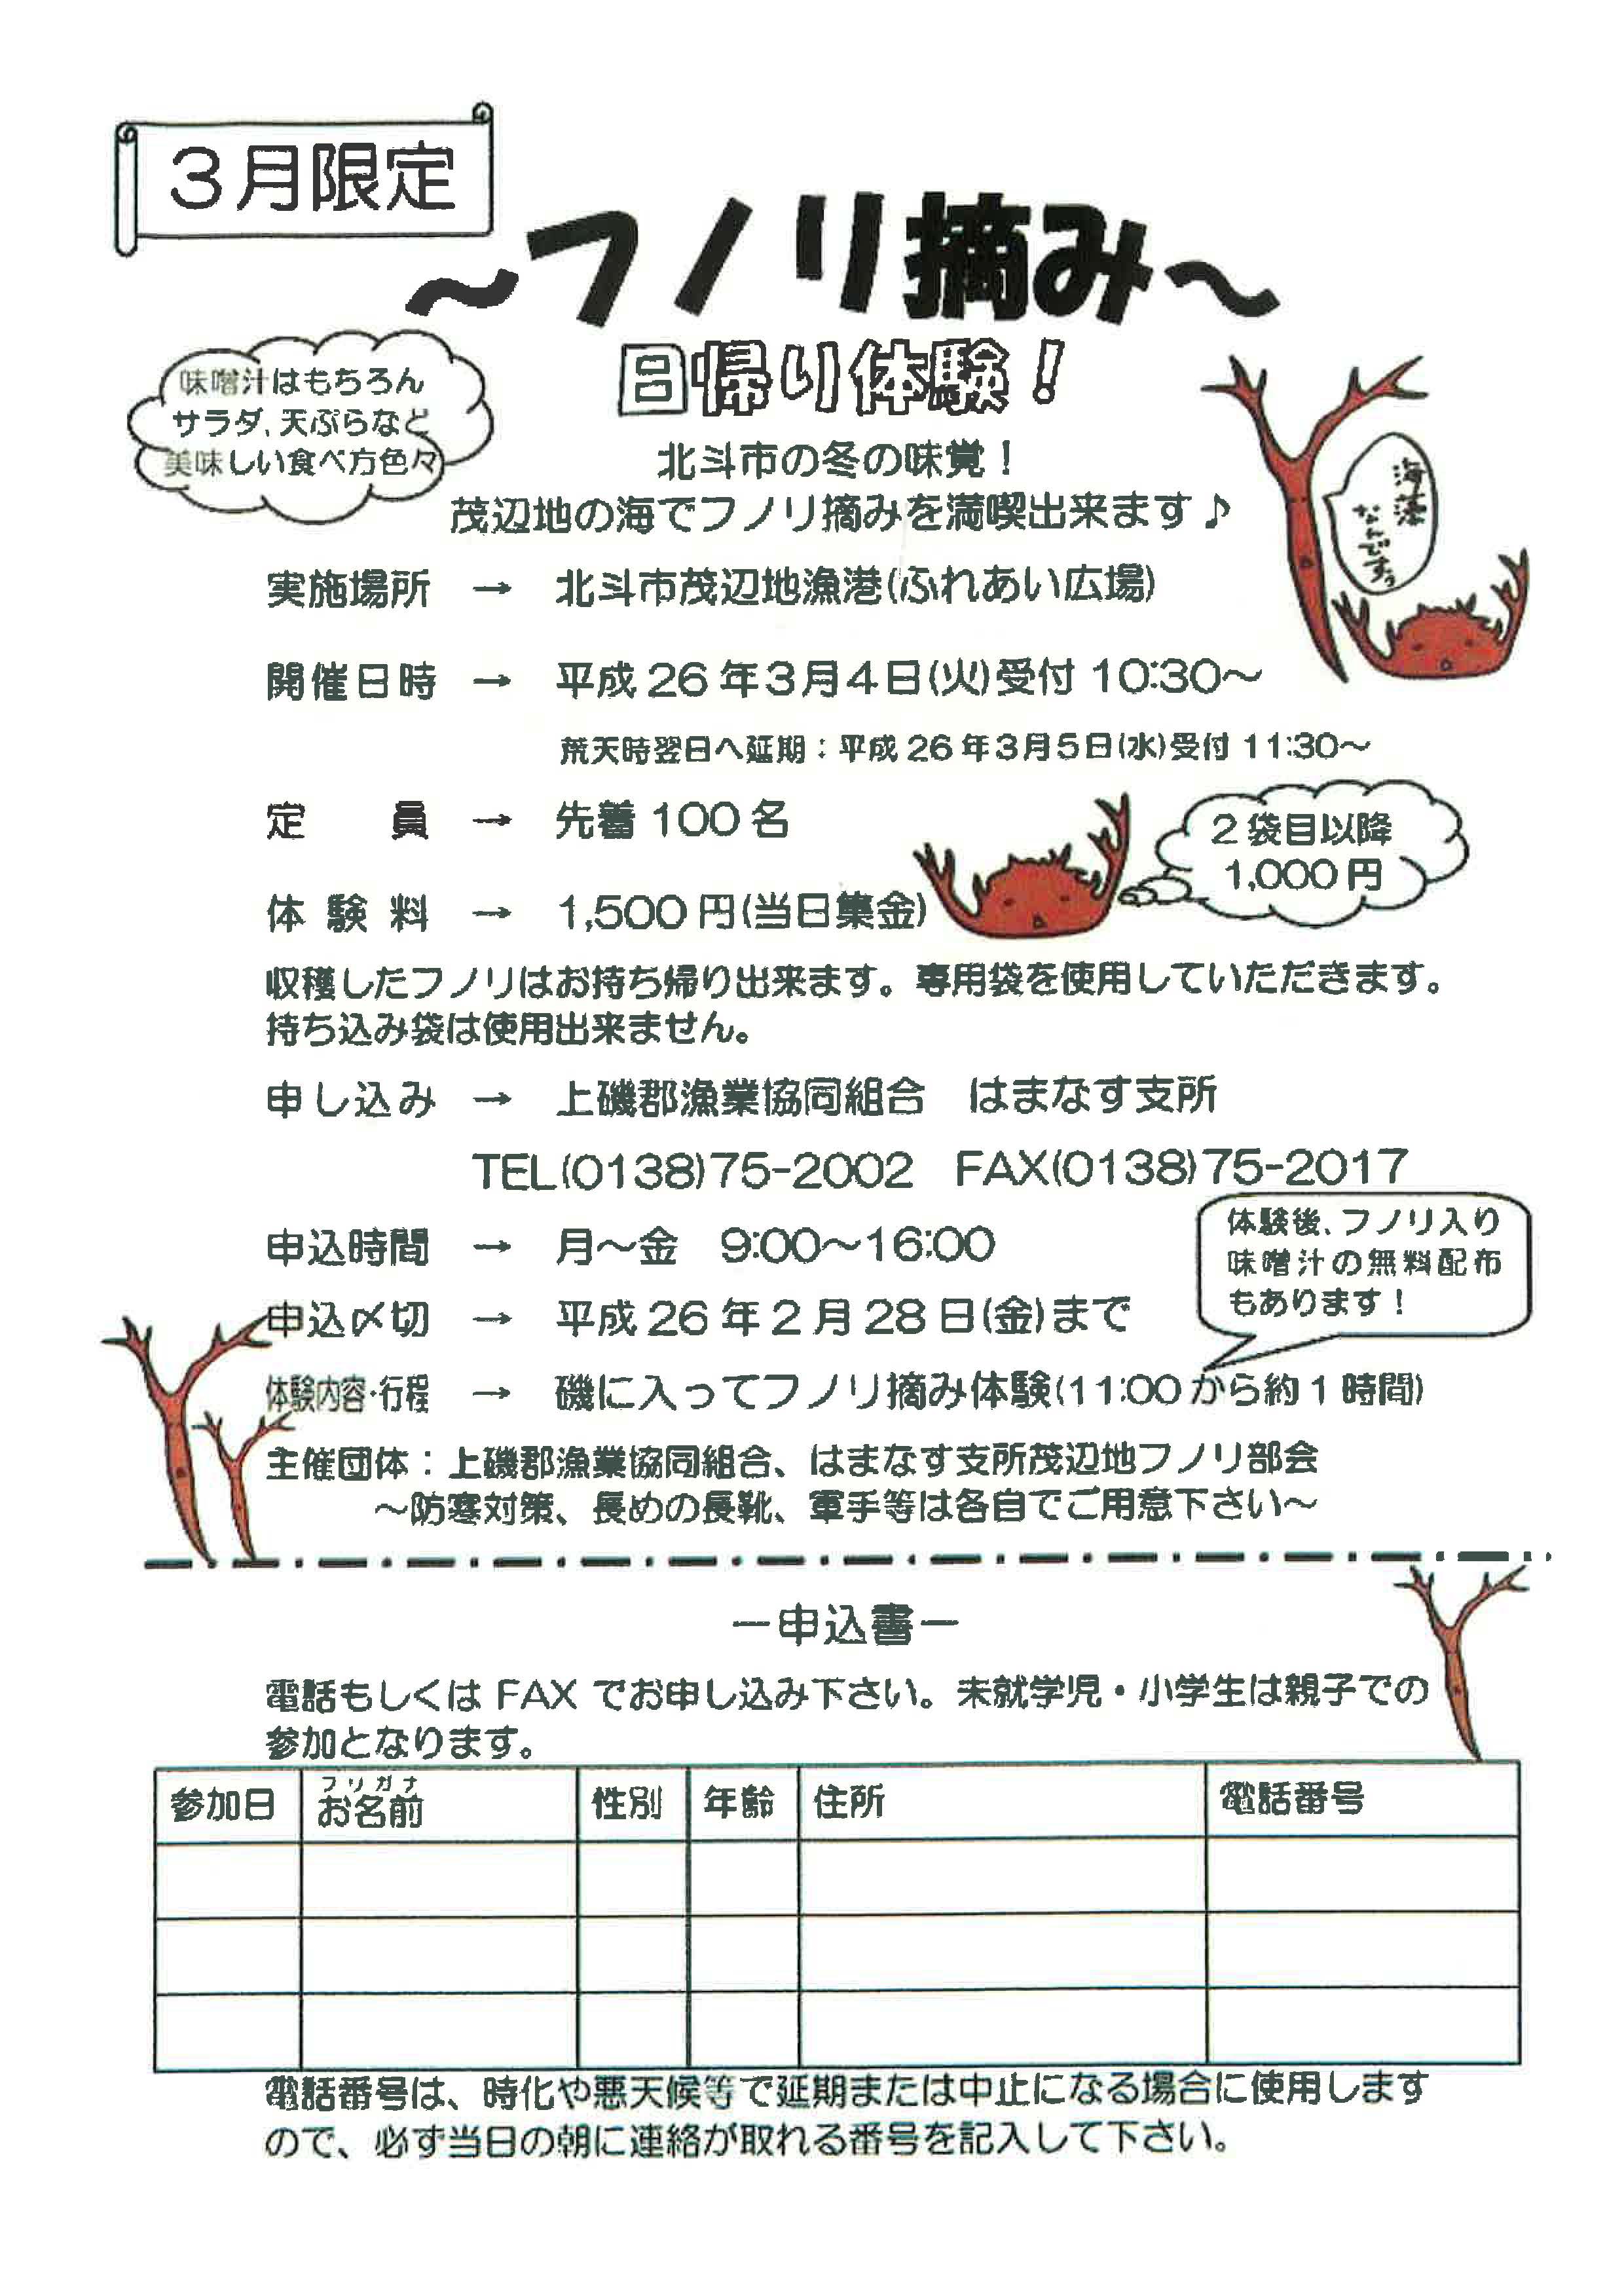 3月限定
～フノリ摘み～
日帰り体験！
味噌汁はもちろん
サラダ、天ぷらなど
美味しい食べ方色々
北斗市の冬の味覚！
茂辺地の海でフノリ摘みを満喫出来ます♪
海藻
なんですっ
実施場所 → 北斗市茂辺地漁港(ふれあい広場)
開催日時 → 平成26年3月4日(火)受付 10:30～
荒天時翌日へ延期：平成26年3月5日(水)受付 11:30～
定員 → 先着100名
2袋目以降
1,000円
体験料 → 1,500円(当日集金)
収穫したフノリはお持ち帰り出来ます。専用袋を使用していただきます。
持ち込み袋は使用出来ません。
申し込み → 上磯郡漁業協同組合 はまなす支所
TEL(0138)75-2002 FAX(0138)75-2017
申込時間 → 月～金 9:00～16:00
体験後、フノリ入り
味噌汁の無料配布
もあります！
申込〆切 → 平成26年2月28日(金)まで
体験内容・行程 → 磯に入ってフノリ摘み体験(11:00から約1時間)
主催団体：上磯郡漁業協同組合、はまなす支所茂辺地フノリ部会
～防寒対策、長めの長靴、軍手等は各自でご用意下さい～
－申込書－
電話もしくは FAX でお申し込み下さい。未就学児・小学生は親子での
参加となります。
フリガナ
参加日 お名前 性別 年齢 住所 電話番号
電話番号は、時化や悪天候等で延期または中止になる場合に使用します
ので、必ず当日の朝に連絡が取れる番号を記入して下さい。